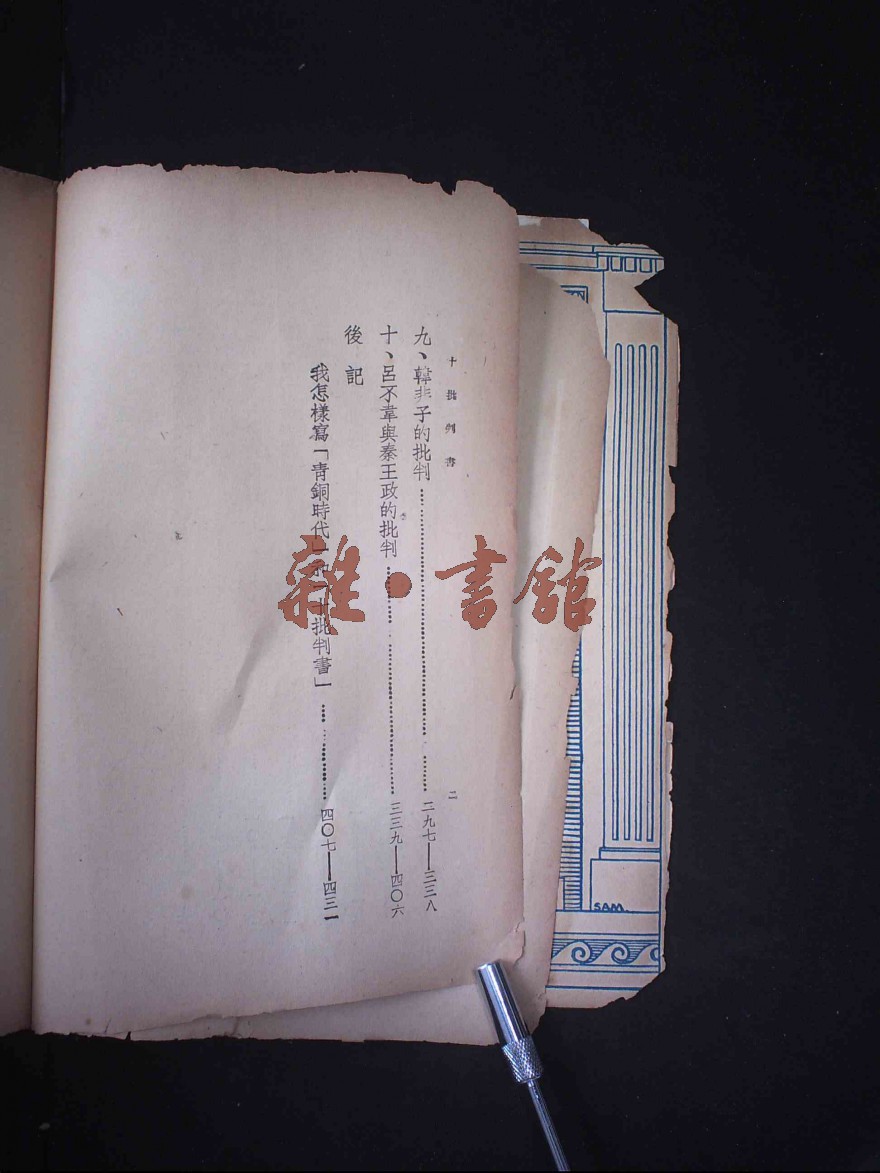 十批判書
二
九、韓非子的批判……二九七——三三八
十、呂不韋與秦王政的批判……三三九——四〇六
後記
我怎樣寫「青銅時代」和「十批判書」……四〇七——四三一
雜·書館
SAM.